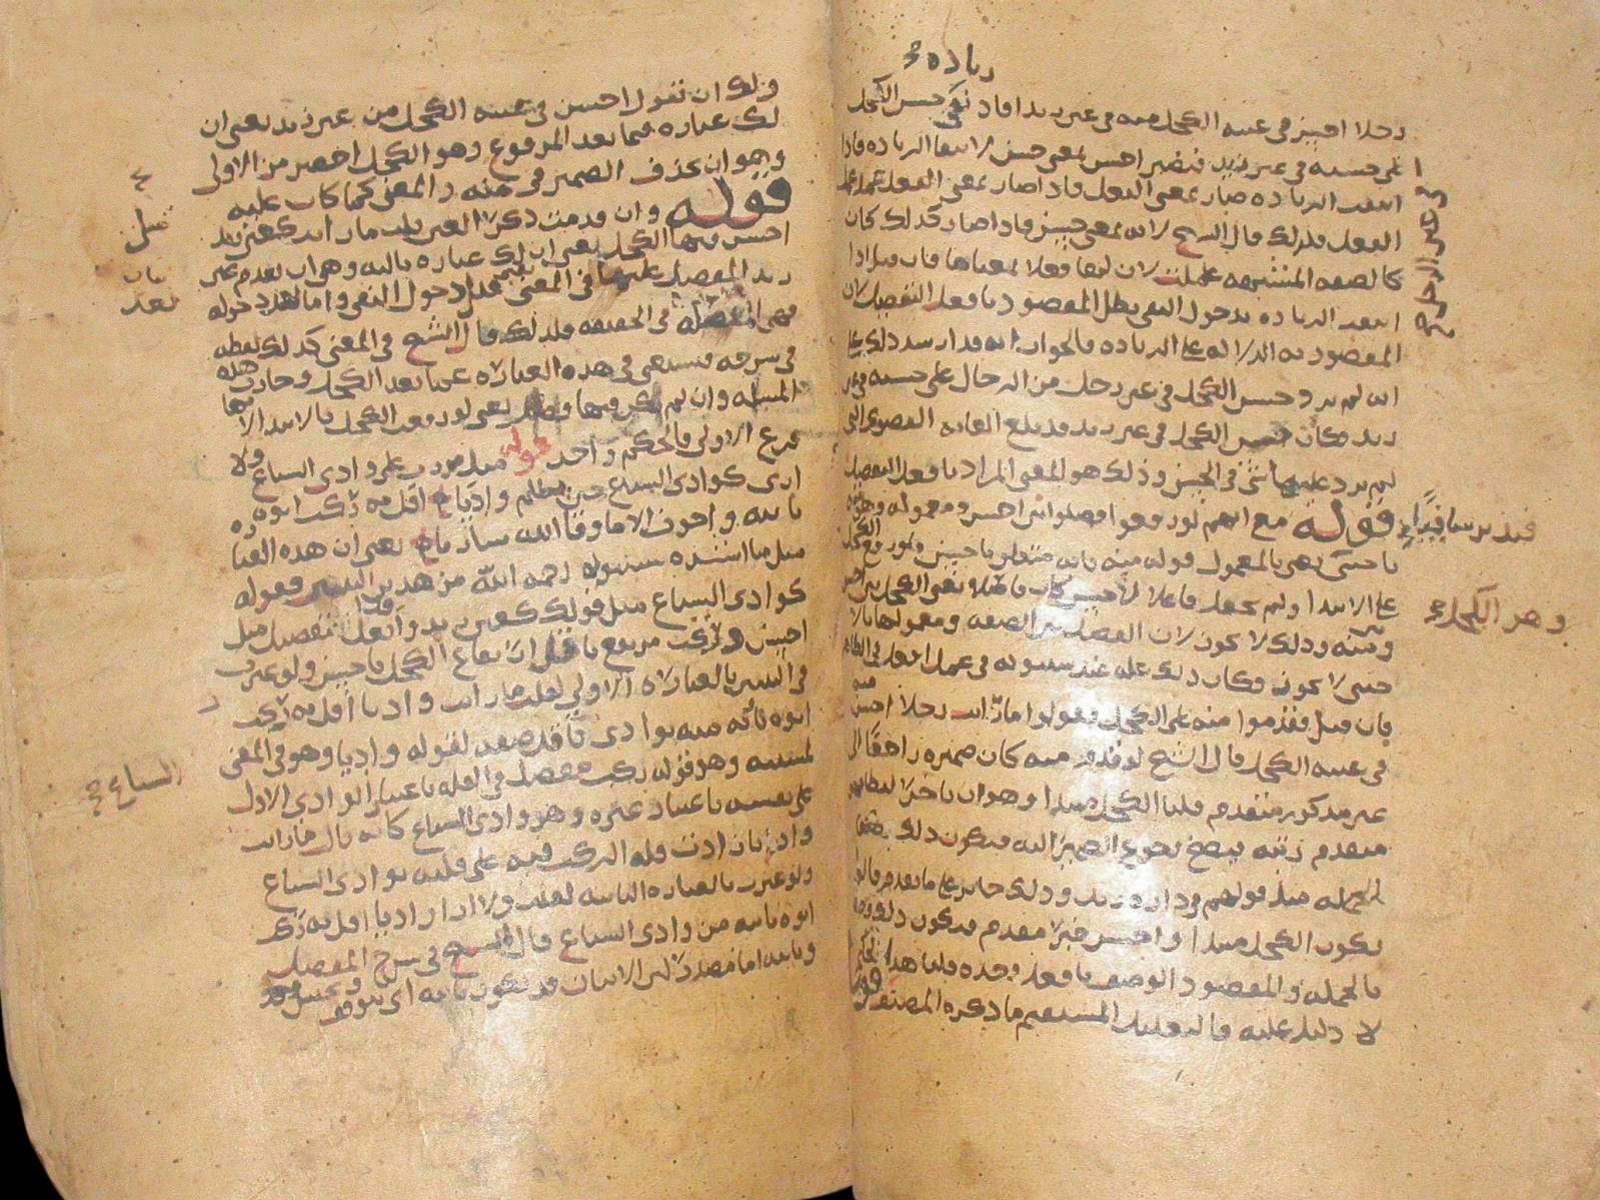 زيادة
رجلا احسن في عينه الكحل منه في عين زيد افاد نفي حسن الكحل
على حسنه في عين زيد فيصير احسن بمعنى حسن لانتفا الزيادة فاذا
انتفت الزيادة صار بمعنى الفعل فاذا صار بمعنى الفعل عمل عمل
الفعل فلذلك قال الشيخ لانه بمعنى حسن فاذا صار كذلك كان
كالصفه المشبهه عملت لان لها فعلا بمعناها فان قيل اذا
انتفت الزيادة بدخول النفي بطل المقصود بافعل التفضيل لان
المقصود به الدلاله على الزيادة فالجواب انه
انه لم يرد حسن الكحل في عين رجل من الرجال على حسنه في عين
زيد فكان حسن الكحل في عين زيد قد بلغ الغايه القصوى التي
لم يزد عليها شي في الحسن وذلك هو المعنى المراد بافعل التفضيل
قوله مع انهم لو رفعوا فصلوا بين احسن ومعموله وهو
باجنبي يعني بالمعمول قوله منه فانه متعلق باحسن ولو رفع الكحل
على الابتدا ولم يجعل فاعلا لاحسن كان فاصلا يعني الكحل بين احسن
ومنه وذلك لا يجوز لان الفصل بين الصفه ومعمولها بالا
جنبي لا يجوز فكان ذلك علة عند سيبويه في عمل افعل في الظاهر
فان قيل فقدموا منه على الكحل فقولوا ما رايت رجلا احسن منه
في عينه الكحل قال الشيخ لو قدم منه كان ضميره راجعا الى
غير مذكور متقدم قلنا الكحل مبتدا وهو ان تاخر لفظا
متقدم رتبه فيصح رجوع الضمير اليه فيكون ذلك
الجمله مثل قولهم في داره زيد وذلك جايز على ما تقدم
يكون الكحل مبتدا واحسن خبرا مقدم فيكون ذلك وصفا
بالجمله والمقصود الوصف بافعل وحده قلنا هذا تحكم
لا دليل عليه فالتعليل المستقيم ما ذكره المصنف قوله
وهو الكحل
ولك ان تقول احسن في عينه الكحل من عين زيد يعني ان
لك عبارة فيما بعد المرفوع وهو الكحل اخصر من الاولى
وهو ان تحذف الضمير في منه والمعنى كما كان عليه
قوله وان قدمت ذكر العين قلت ما رايت كعين زيد
احسن فيها الكحل يعني ان لك عبارة ثالثه وهو ان تقدم عين
زيد المفضل عليها في المعنى قبل دخول النفي واما بعد دخوله
فهي المفضله في الحقيقه فلذلك قال الشيخ في المعنى كذلك لفظه
في شرحه فتستغني في هذه العبارة عما بعد الكحل وجازت هذه
المسله وان لم يكن فيها فصل يعني لو رفعت الكحل بالابتدا لانها
فرع الاولى والحكم واحد قوله مثل مررت على وادي السباع ولا
ارى كوادي السباع حين يظلم واديا اقل به ركب اتوه
تايه واخوف الا ما وقا الله ساريا يعني ان هذه العبارة
مثل ما انشده سيبويه رحمه الله من هذين البيتين فقوله
كوادي السباع مثل قولك كعين زيد وافعل التفضيل مثل
احسن وركب مرفوع باقل ارتفاع الكحل باحسن ولو عبرت
في البيت بالعبارة الاولى لقلت ما رايت واديا اقل به ركب
اتوه تايه منه بوادي السباع فاقل صفة لقوله واديا وهو في المعنى
لمسببه وهو قوله ركب مفضل في القله باعتبار الوادي الاول
على نفسه باعتبار غيره وهو وادي السباع كانه قال ما رايت
واديا زادت قله الركب فيه على قلته بوادي السباع
ولو عبرت بالعبارة الثانيه لقلت ولا ارا واديا اقل به ركب
اتوه تايه من وادي السباع قال الشيخ في شرح المفصل
وتايه اما مصدرا لان الاتيان قد يكون تايه اي بتوقف وتحبس
قيل
السباع